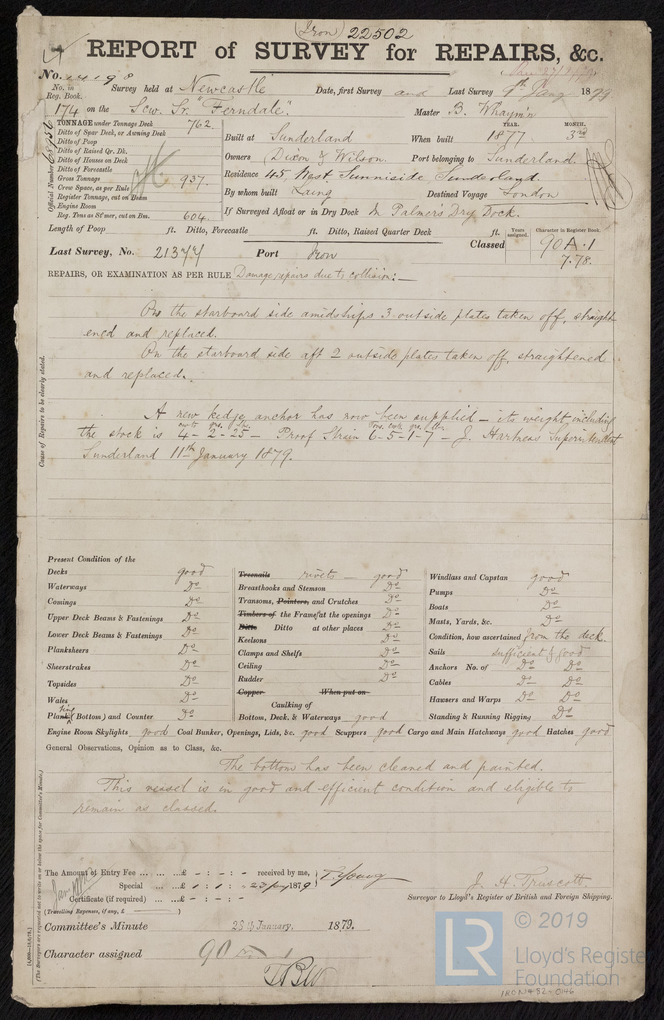 (Iron) 22502
REPORT of SURVEY for REPAIRS, &c.
No. Survey held at Newcastle Date, first Survey and Last Survey 9th Jany 1879
No. in Reg. Book.
174 on the Scw. Sr. "Ferndale". Master B. Whaymn
TONNAGE under Tonnage Deck 762
Ditto of Spar Deck, or Awning Deck
Ditto of Poop
Ditto of Raised Qr. Dk.
Ditto of Houses on Deck
Ditto of Forecastle
Gross Tonnage 937.
Crew Space, as per Rule
Register Tonnage, cut on Beam
Engine Room
Reg. Tons as St'mer, cut on Bm. 604.
Official Number
Built at Sunderland When built YEAR. 1877 MONTH. 3mo
Owners Dixon & Wilson. Port belonging to Sunderland.
Residence 45 West Sunniside Sunderland.
By whom built Laing Destined Voyage London
If Surveyed Afloat or in Dry Dock In Palmers Dry Dock.
Length of Poop ft. Ditto, Forecastle ft. Ditto, Raised Quarter Deck ft.
Years assigned. Character in Register Book.
Last Survey, No. 21377 Port Iron Classed 90 A.1
7.78.
REPAIRS, OR EXAMINATION AS PER RULE Damage repairs due to collision:—
On the starboard side amidships 3 outside plates taken off, straight-
ened and replaced.
On the starboard side aft 2 outside plates taken off, straightened
and replaced.
A new kedge anchor has now been supplied — its weight including
the stock is 4 - 2 - 25 - Proof Strain 6-5-1-7 - J. Hartness Superintendent
Sunderland 11th January 1879.
Cause of Repairs to be clearly stated.
Present Condition of the
Decks good
Waterways Do
Comings Do
Upper Deck Beams & Fastenings Do
Lower Deck Beams & Fastenings Do
Planksheers Do
Sheerstrakes Do
Topsides Do
Wales Do
Plating (Bottom) and Counter Do
Treenails rivets — good
Breasthooks and Stemson Do
Transoms, Pointers, and Crutches Do
Timbers of the Frame at the openings Do
Ditto Ditto at other places Do
Keelsons Do
Clamps and Shelfs Do
Ceiling Do
Rudder Do
Copper When put on
Caulking of
Bottom, Deck, & Waterways good
Windlass and Capstan good
Pumps Do
Boats Do
Masts, Yards, &c. Do
Condition, how ascertained from the deck.
Sails sufficient & good
Anchors No. of Do Do
Cables Do Do
Hawsers and Warps Do Do
Standing & Running Rigging Do
Engine Room Skylights good Coal Bunker, Openings, Lids, &c. good Scuppers good Cargo and Main Hatchways good Hatches good
General Observations, Opinion as to Class, &c.
The bottom has been cleaned and painted.
This vessel is in good and efficient condition and eligible to
remain as classed.
(The Surveyors are requested not to write on or below the space for Committee's Minute.)
The Amount of Entry Fee ... ... ...£ - : - : - received by me, T. Young
Special ... ...£ 1 : 1 : - 23 Jany 1879
Certificate (if required) ... ...£ - : - : -
(Travelling Expenses, if any, £ )
J. H. Truscott
Surveyor to Lloyd's Register of British and Foreign Shipping.
Committee's Minute 28th January. 1879.
Character assigned 90 A 1
© 2019
LR
Lloyd's Register
Foundation
IRON482-0146